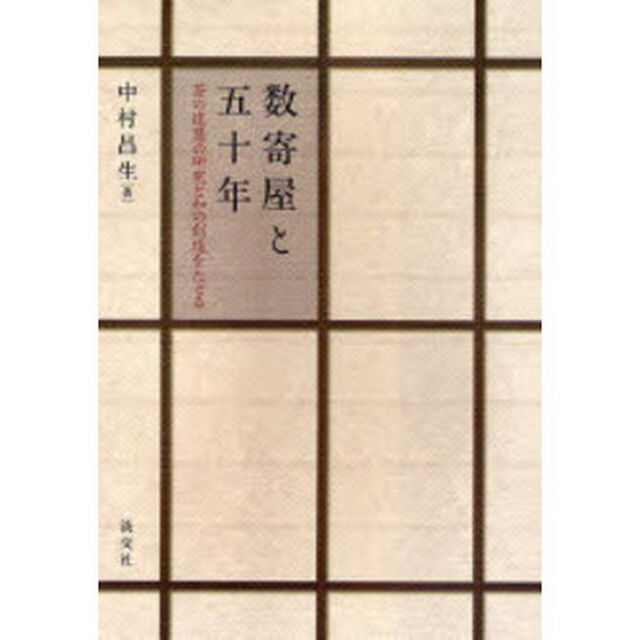 数寄屋と
五十年
茶の建築の研究と和の創造をたどる
中村昌生[著]
淡交社